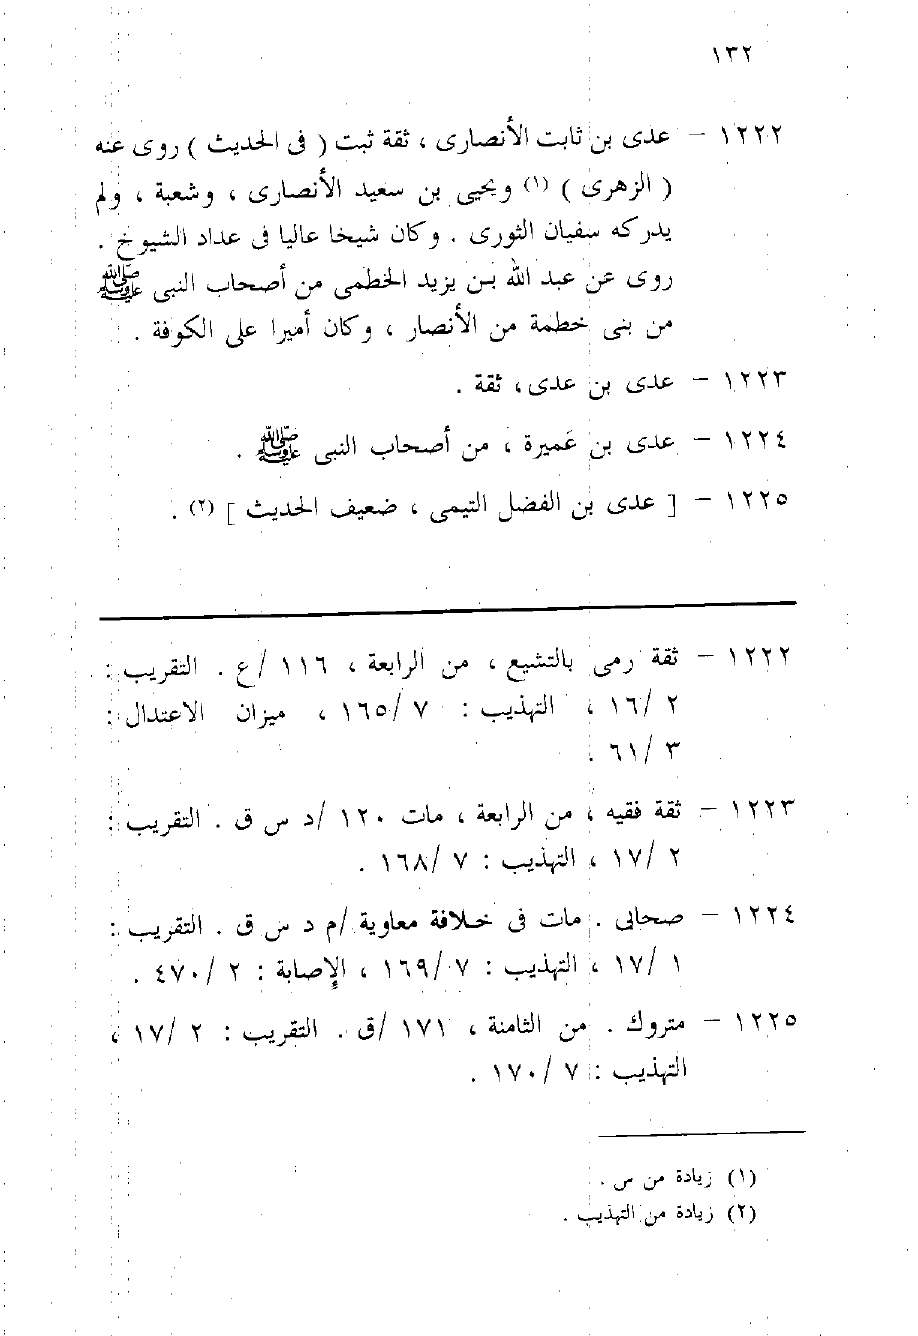 ١٣٢
١٢٢٢ – عدى بن ثابت الأنصارى ، ثقة ثبت ( فى الحديث ) روى عنه
( الزهرى ) (١) ويحيى بن سعيد الأنصارى ، وشعبة ، ولم
يدركه سفيان الثورى . وكان شيخا عاليا فى عداد الشيوخ .
روى عن عبد الله بن يزيد الخطمى من أصحاب النبى ﷺ
من بنى خطمة من الأنصار ، وكان أميرا على الكوفة .
١٢٢٣ – عدى بن عدى ، ثقة .
١٢٢٤ – عدى بن عَميرة ، من أصحاب النبى ﷺ .
١٢٢٥ – [ عدى بن الفضل التيمى ، ضعيف الحديث ] (٢) .
١٢٢٢ – ثقة رمى بالتشيع ، من الرابعة ، ١١٦ /ع . التقريب :
٢ /١٦ ، التهذيب : ٧ /١٦٥ ، ميزان الاعتدال :
٣ /٦١ .
١٢٢٣ – ثقة فقيه ، من الرابعة ، مات ١٢٠ /د س ق . التقريب :
٢ /١٧ ، التهذيب : ٧ /١٦٨ .
١٢٢٤ – صحابى . مات فى خلافة معاوية /م د س ق . التقريب :
١ /١٧ ، التهذيب : ٧ /١٦٩ ، الإصابة : ٢ /٤٧٠ .
١٢٢٥ – متروك . من الثامنة ، ١٧١ /ق . التقريب : ٢ /١٧ ،
التهذيب : ٧ /١٧٠ .
(١) زيادة من س .
(٢) زيادة من التهذيب .